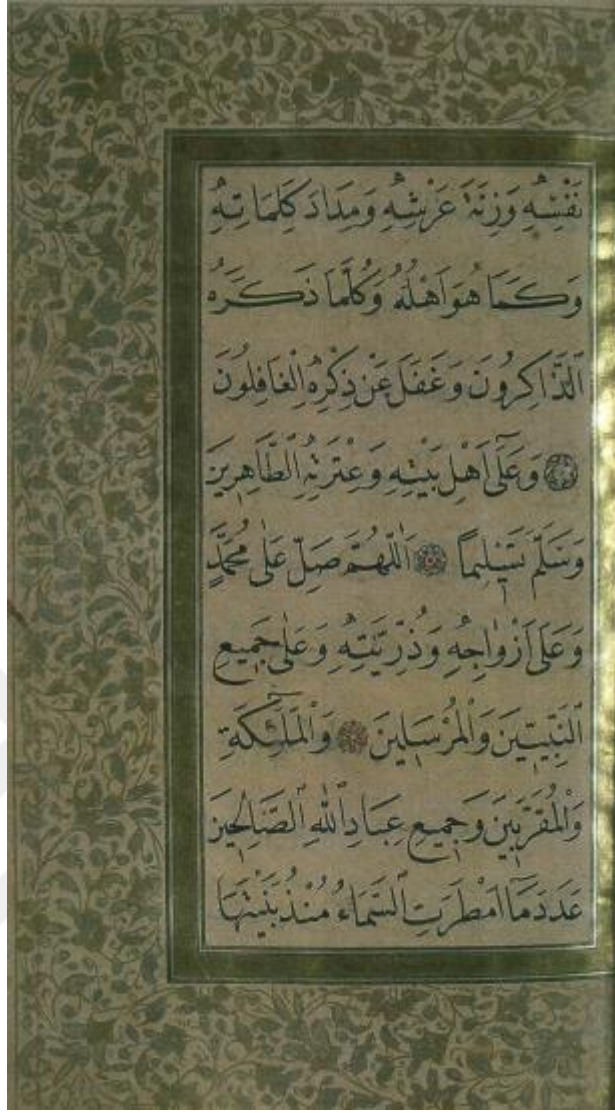 نَفْسِهِ وَزِنَةَ عَرْشِهِ وَمِدَادَ كَلِمَاتِهِ
وَكَمَا هُوَ اَهْلُهُ وَكُلَّمَا ذَكَرَهُ
اَلذَّاكِرُونَ وَغَفَلَ عَنْ ذِكْرِهِ الْغَافِلُونَ
وَعَلٰٓى اَهْلِ بَيْتِهِ وَعِتْرَتِهِ الطَّاهِرِينَ
وَسَلَّمَ تَسْلِيماً اَللّٰهُمَّ صَلِّ عَلٰى مُحَمَّدٍ
وَعَلٰٓى اَزْوَاجِهِ وَذُرِّيَّتِهِ وَعَلٰى جَمِيعِ
النَّبِيّينَ وَالْمُرْسَلِينَ وَالْمَلٰٓئِكَةِ
وَالْمُقَرَّبِينَ وَجَمِيعِ عِبَادِ اللّٰهِ الصَّالِحِينَ
عَدَدَ مَآ اَمْطَرَتِ السَّمَاءُ مُنْذُ بَنَيْتَهَا